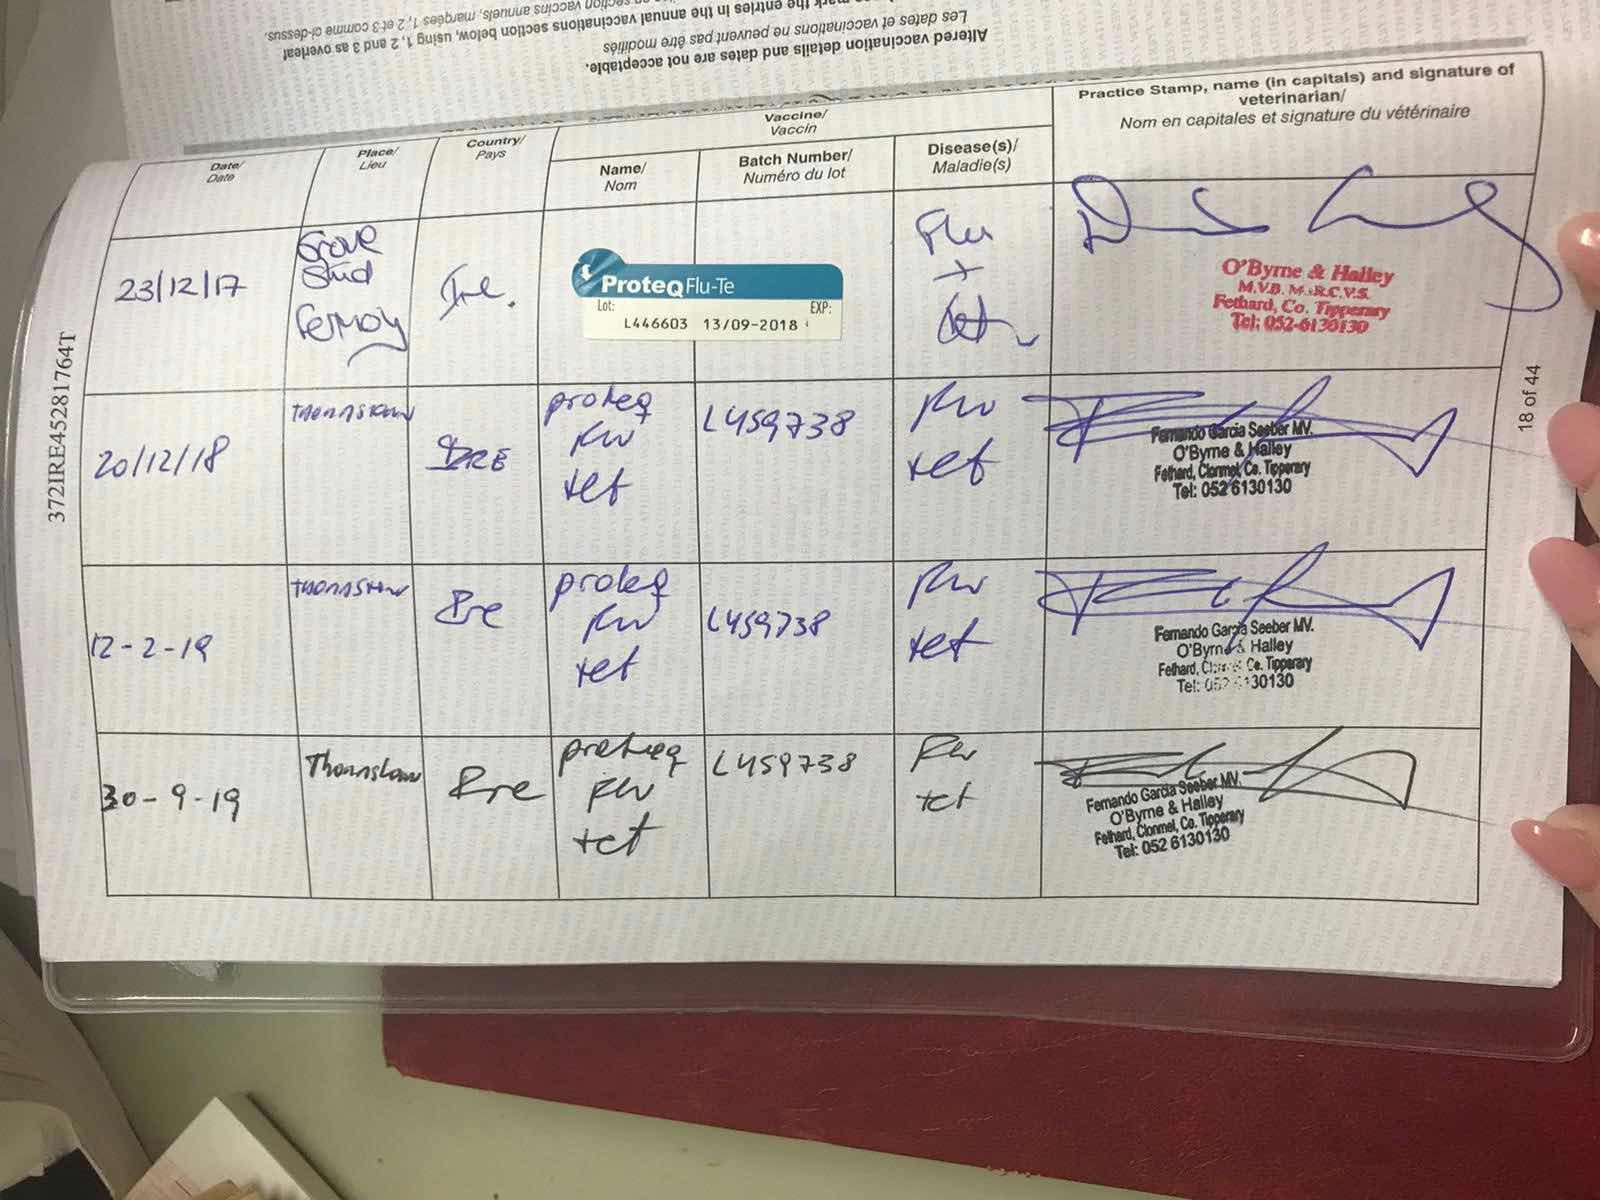 section vaccins annuels, marquées 1, 2 et 3 comme ci-dessus.
mark the entries in the annual vaccinations section below, using 1, 2 and 3 as overleaf
Les dates et vaccinations ne peuvent pas être modifiés
Altered vaccination details and dates are not acceptable.
Date/
Date
Place/
Lieu
Country/
Pays
Vaccine/
Vaccin
Name/
Nom
Batch Number/
Numéro du lot
Disease(s)/
Maladie(s)
Practice Stamp, name (in capitals) and signature of
veterinarian/
Nom en capitales et signature du vétérinaire
23/12/17
Grove
Stud
Fermoy
Ire.
ProteqFlu-Te
Lot: EXP:
L446603 13/09-2018
Flu
+
tet
O'Byrne & Halley
M.V.B. M.R.C.V.S.
Fethard, Co. Tipperary
Tel: 052-6130130
20/12/18
IRE
proteq
flu
tet
L459738
flu
tet
Fernando Garcia Seeber MV.
O'Byrne & Halley
Fethard, Clonmel, Co. Tipperary
Tel: 052 6130130
12-2-19
Ire
proteq
flu
tet
L459738
flu
tet
Fernando Garcia Seeber MV.
O'Byrne & Halley
Fethard, Clonmel, Co. Tipperary
Tel: 052 6130130
30-9-19
Ire
proteq
flu
tet
L459738
flu
tet
Fernando Garcia Seeber MV.
O'Byrne & Halley
Fethard, Clonmel, Co. Tipperary
Tel: 052 6130130
372IRE45281764T
18 of 44